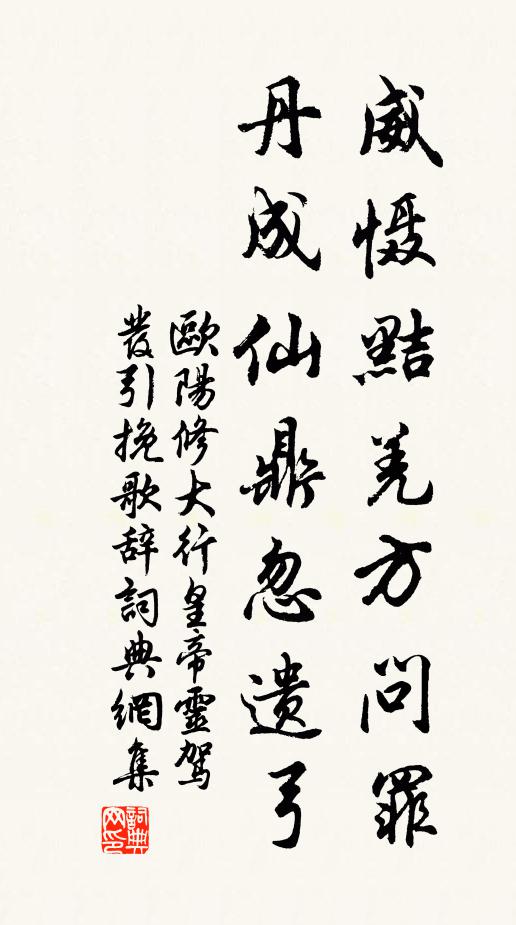 威慑黠羌方问罪
丹成仙鼎忽遗弓
歐陽修大行皇帝靈駕
發引挽歌辞詞典網集
詞典
网印